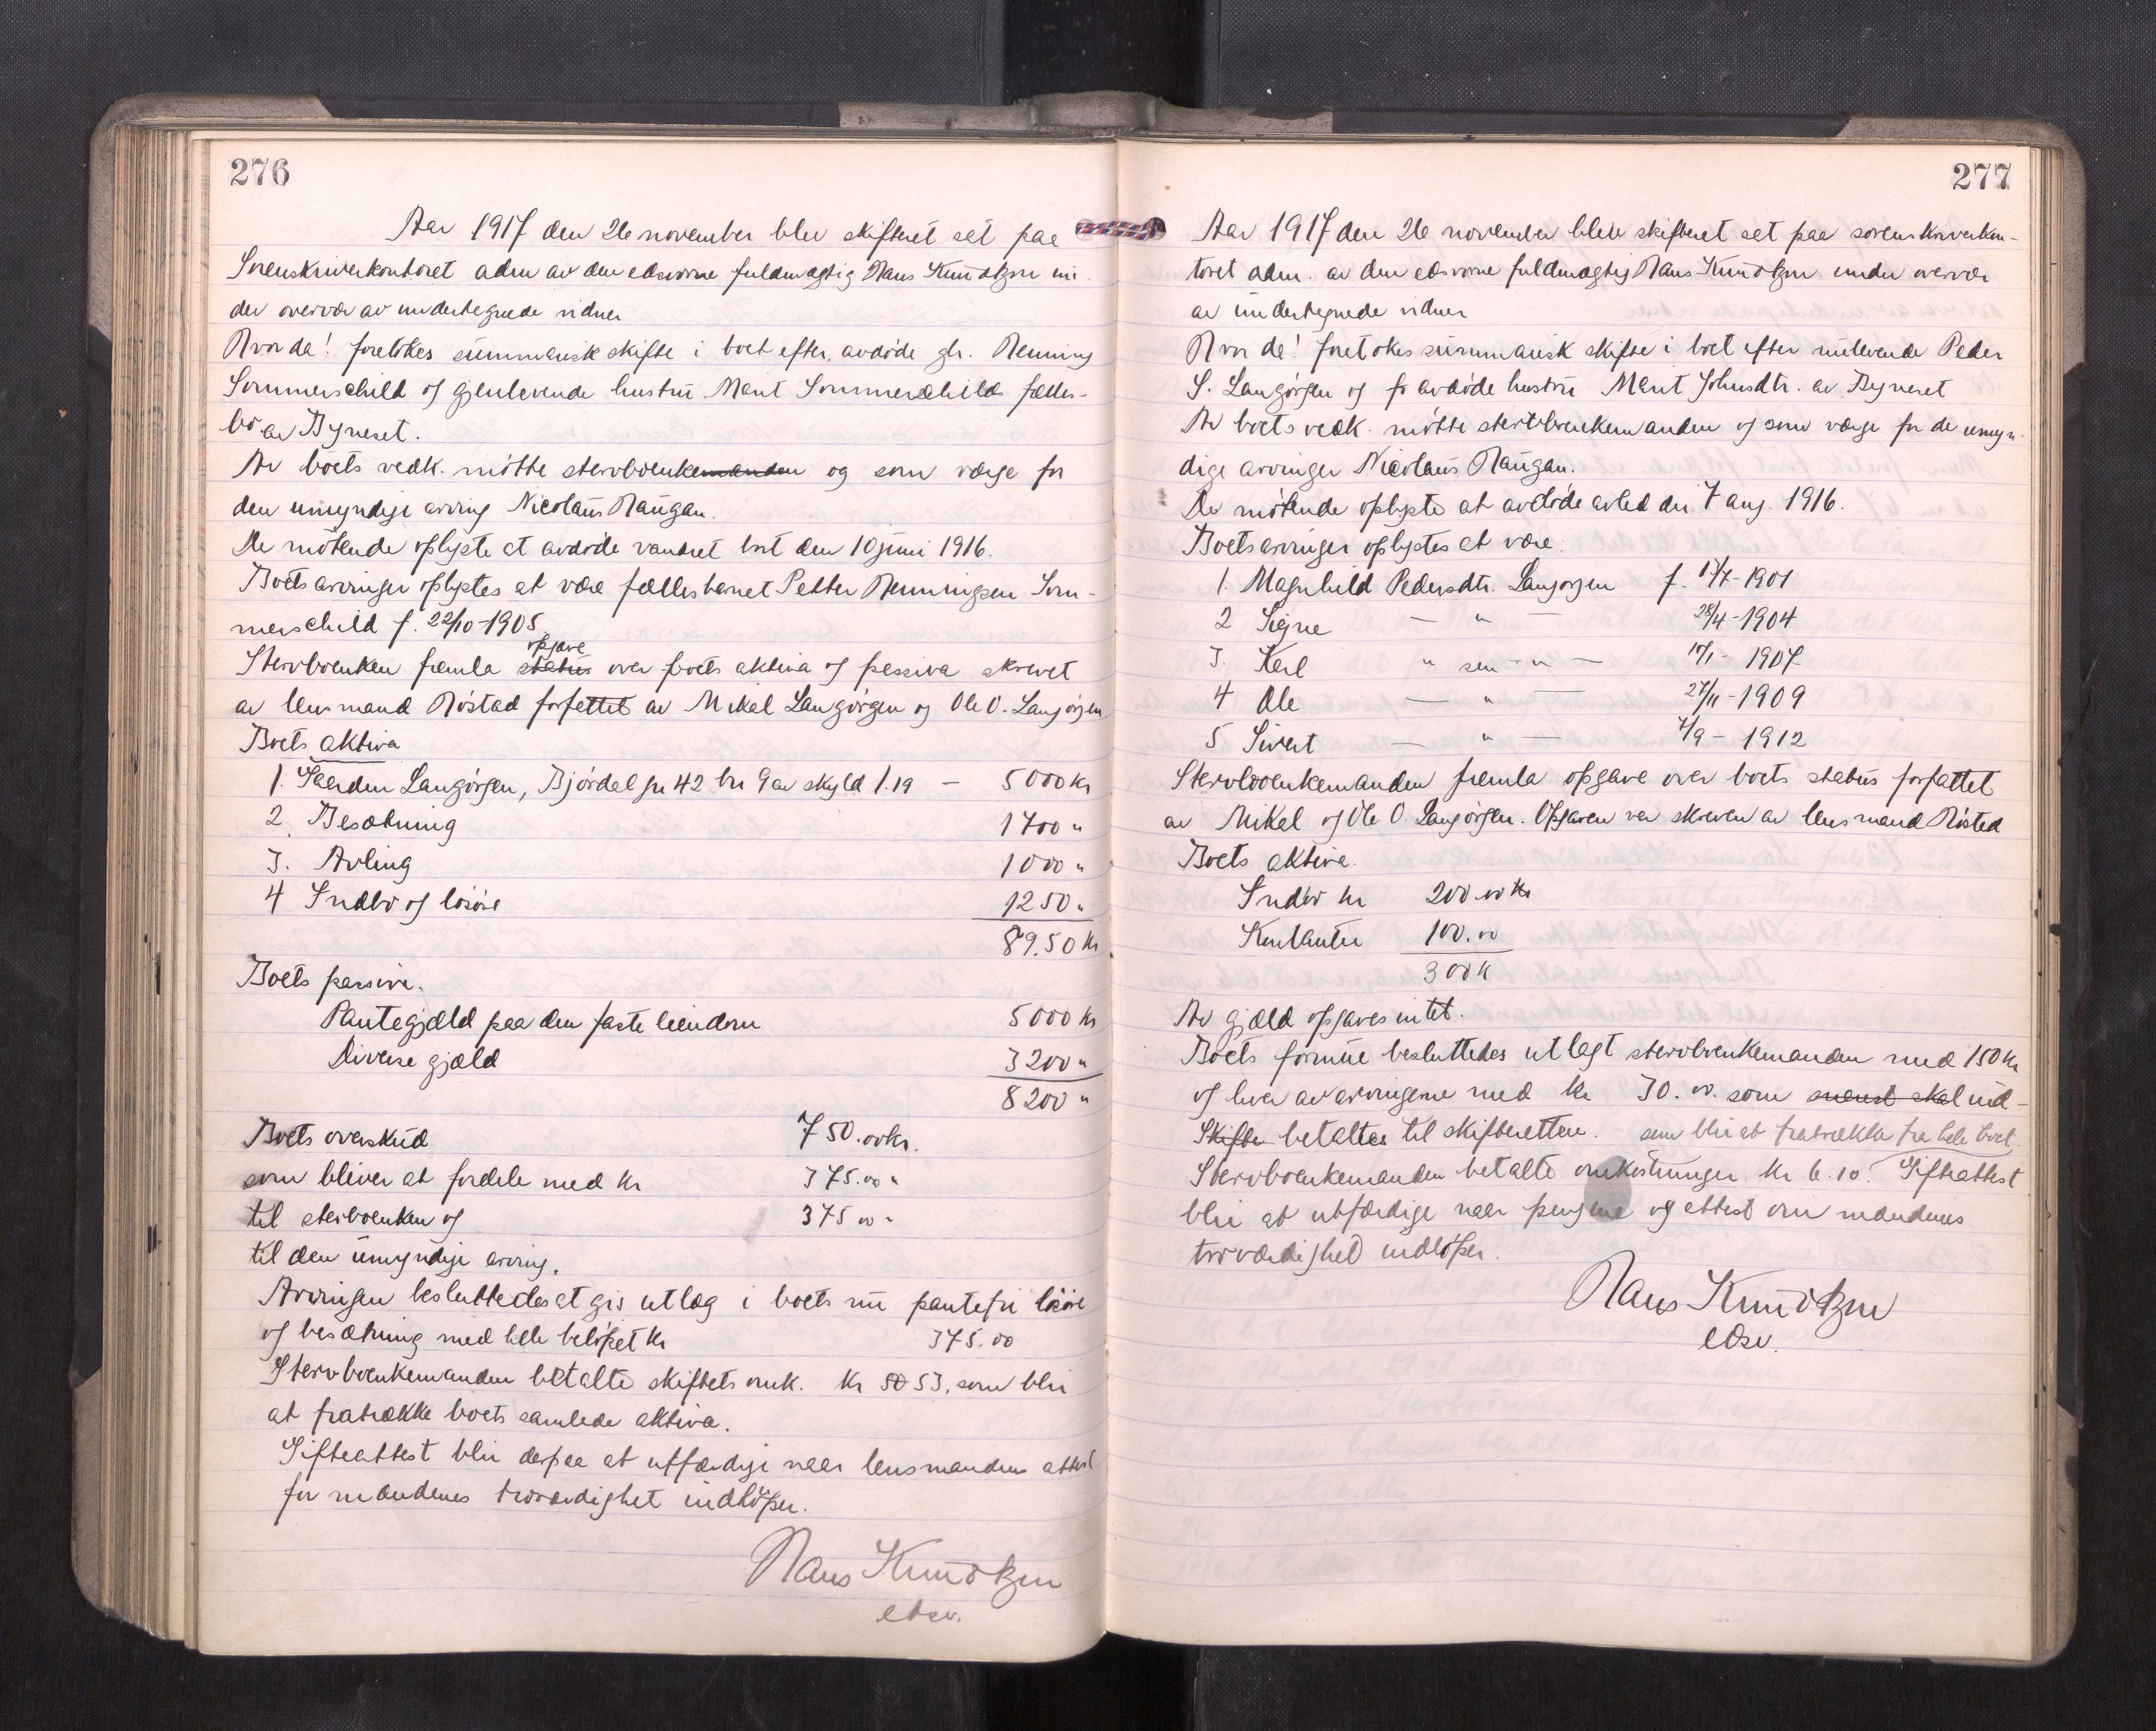 276
Aar 1917 den 26 november blev skifteret sat paa
Sorenskriverkontoret adm av den edsvorne fuldmægtig Hans Knudtzon un-
der overvær av undertegnede vidner
Hvorda! foretokes summarisk skifte i boet efter avdøde gbr. Henning
Sommerschild og gjenlevende hustru Marit Sommerschilds fælles-
bo av Bynesset.
Av boets vedk. møtte stervboenkemanden og som verge for
den umyndige arving Nicolaus Haugan.
De møtende oplyste at avdøde vandret bort den 10 juni 1916.
Boets arvinger oplystes at være fællesbarnet Petter Henningsen Som-
merschild f. 22/10-1905
opgave
Stervboenken fremla status over boets aktiva og passiva skrevet
av lensmand Röstad forfattet av Mikal Langörgen og Ole O. Langörgen
Boets aktiva
1. Gaarden Langörgen, Björdal gr 42 br 9 av skyld 1.19 — 5000 kr
2. Besætning 1700 "
3. Avling 1000 "
4 Indbo og løsøre 1250 "
89.50 kr.
Boets passiva.
Pantegjæld paa den faste eiendom 5000 kr
Diverse gjæld 3200 "
8200 "
Boets overskud 750.00 kr.
som bliver at fordele med kr 375.00 "
til sterboenken og 375 00 "
til den umyndige arving.
Arvingen besluttedes at gis utlæg i boets nu pantefri løsøre
og besætning med hele beløpet kr 375.00
Stervboenkemanden betalte skiftets omk. kr 50 53. som blir
at fratrække boets samlede aktiva.
Gifteattest blir derpaa at utfærdige naar lensmandens attest
for mændenes troværdighet indløper.
Hans Knudtzon
edsv.
277
Aar 1917 den 26 november blev skifteret sat paa sorenskriverkon-
toret adm. av den edsvorne fuldmægtig Hans Knudtzon under overvær
av undertegnede vidner
Hvor da! foretokes summarisk skifte i boet efter nulevende Peder
S. Langörgen og avdøde hustru Marit Johnsdtr. av Bynesset
Av boets vedk. møtte stervboenkemanden og som værge for de umyn-
dige arvinger Nicolaus Haugan.
De møtende oplyste at avdøde avled den 7 aug. 1916.
Boets arvinger oplystes at være:
1. Magnhild Pedersdtr. Langørgen f. 17/7-1901
2 Signe — " — 28/4-1904
3. Karl " sen - " — 15/1- 1907
4 Ole — " — 27/11-1909
5 Sivert — " — 7/9 - 1912
Stervboenkemanden fremla opgave over boets status forfattet
av Mikal og Ole O Langørgen. Opgaven var skreven av lensmand Röstad
Boets aktiva.
Indbo kr 200.00 kr
Kontanter 100.00
300 k
Av gjæld opgaves intet.
Boets formue besluttedes utlagt stervboenkemanden med 150 kr
og hver av arvingerne med kr 30.00. som snarest skal ind-
Skifte betaltes til skifteretten. som blir at fratrække fra hele boet.
Stervboenkemanden betalte omkostninger kr 6.10. Gifteattest
blir at utfærdige naar pengene og attest om mændenes
troværdighed indløper.
Hans Knudtzon
edsv.